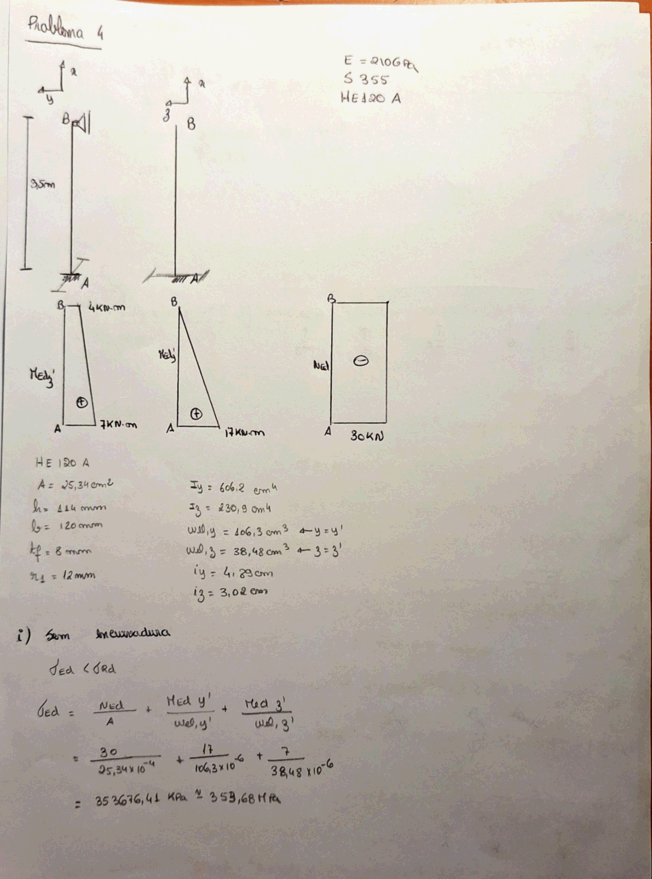 Problema 4
E = 210GPa
S 355
HE 120 A
x
y
B
3,5m
A
x
z
B
A
B 4KN.m
MEdz'
+
A 7KN.m
B
MEdy'
+
A 17KN.m
B
NEd
-
A 30KN
HE 120 A
A = 25,34 cm²
h = 114 mm
b = 120 mm
tf = 8 mm
r1 = 12 mm
Iy = 606.2 cm⁴
Iz = 230,9 cm⁴
Wel,y = 106,3 cm³ ← y = y'
Wel,z = 38,48 cm³ ← z = z'
iy = 4,89 cm
iz = 3,02 cm
i) Sem encurvadura
σEd < σRd
σEd = NEd/A + MEd y'/Wel,y' + MEd z'/Wel,z'
= 30/25,34×10⁻⁴ + 17/106,3×10⁻⁶ + 7/38,48×10⁻⁶
= 353676,41 KPa ≈ 353,68 MPa